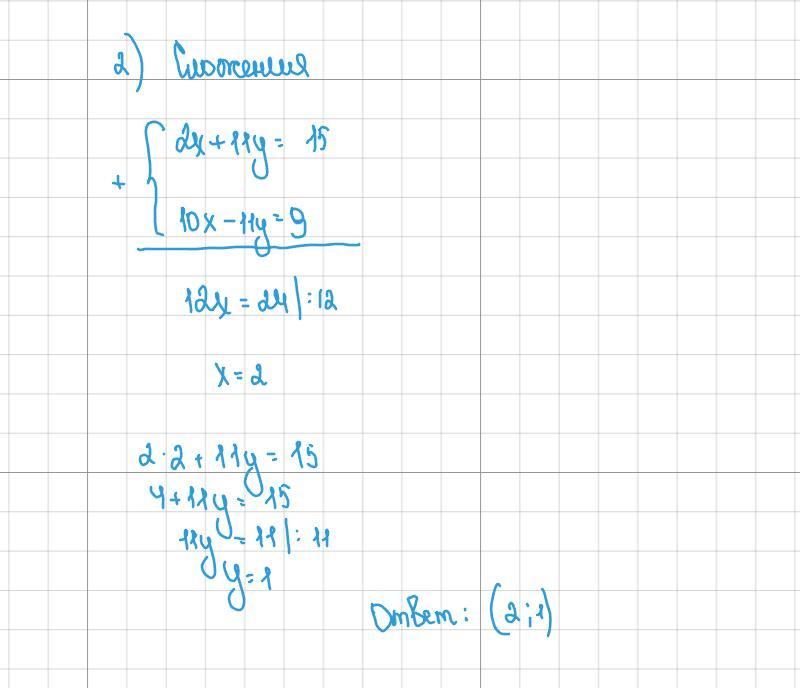 2) Сложения
2x+11y= 15
+
10x-11y=9
12x=24|:12
x=2
2·2+11y=15
4+11y=15
11y=11|:11
y=1
Ответ: (2;1)